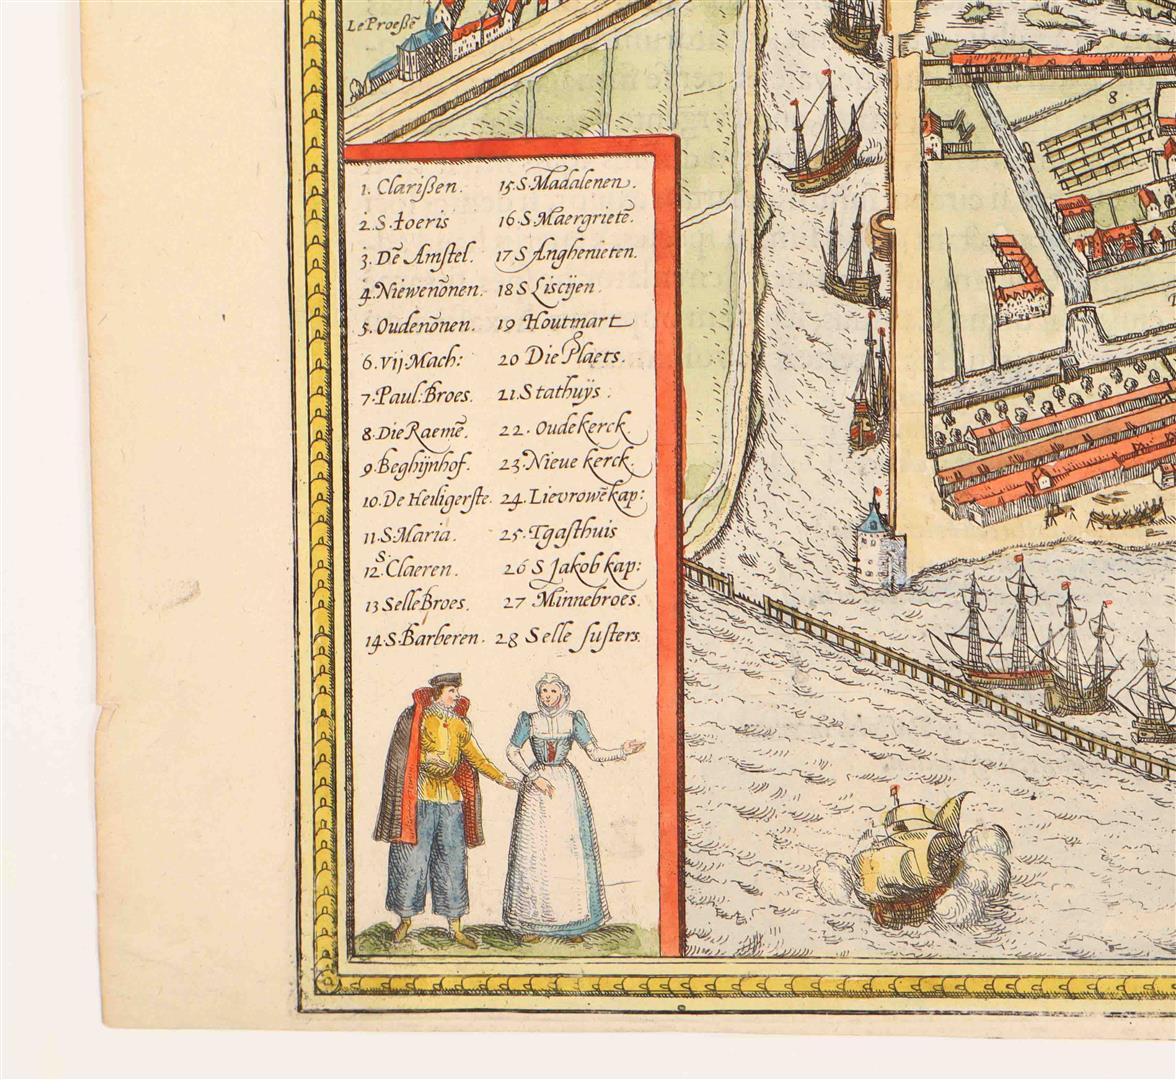 Le Proeßē
8
1. Clarißen.
2. S. Joeris
3. Dē Amstel.
4. Niewenōnen.
5. Oudenōnen.
6. Vij Mach:
7. Paul: Broes.
8. Die Raemē.
9. Beghijnhof.
10. De Heiligerste.
11. S. Maria.
12 S. Claeren.
13 Selle Broes.
14. S. Barberen.
15. S. Madalenen.
16. S. Maergriete.
17 S Anghenieten.
18 S Liscijen.
19 Houtmart
20 Die Plaets.
21. Stathuÿs:
22. Oude kerck
23. Nieue kerck.
24. Lievrowē kap:
25. Tgasthuis
26 S Jakob kap:
27 Minnebroes.
28 Selle susters.